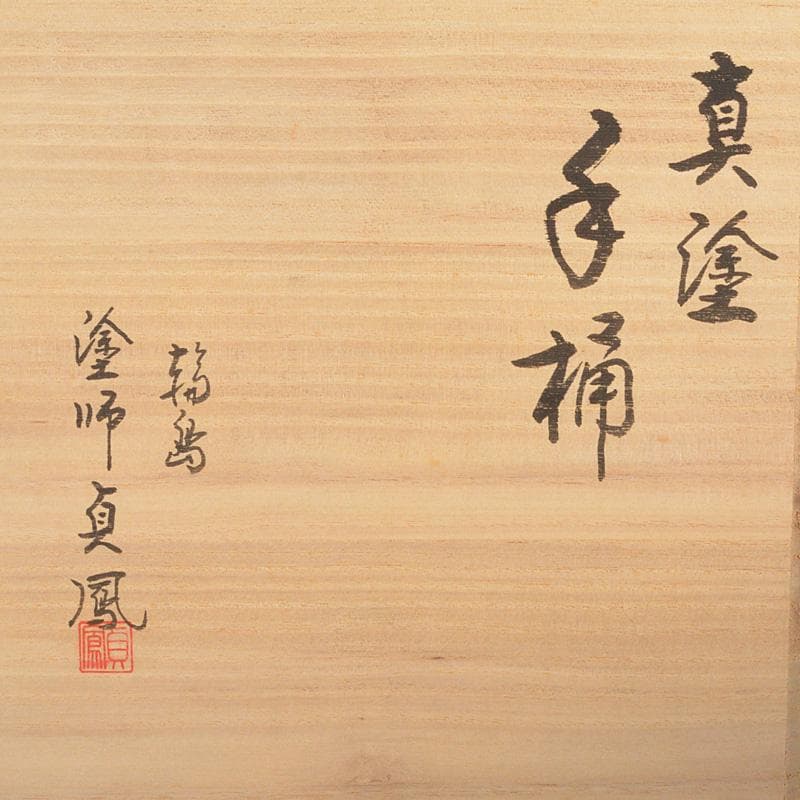 真塗
手桶
輪島
塗師貞鳳
貞鳳